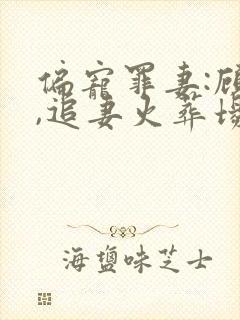 偏寵罪妻:顧
,追妻火葬場
海鹽味芝士